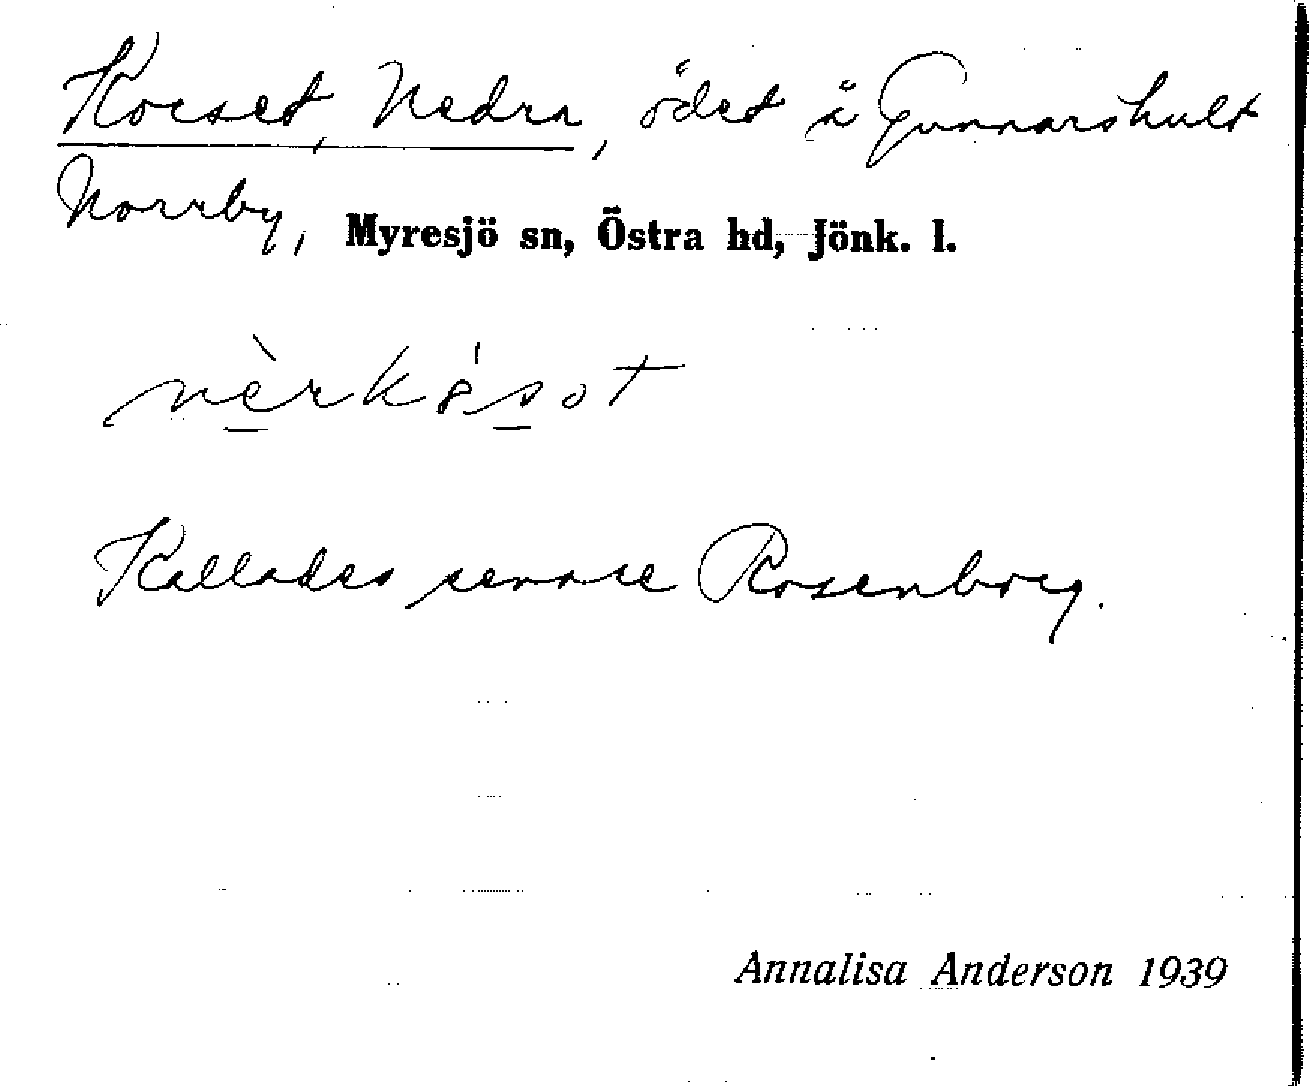 Korset, Nedra, ödet å Gunnarshult
Norrby, Myresjö sn, Östra hd, Jönk. l.
Kallades senare Rosenborg.
Annalisa Anderson 1939